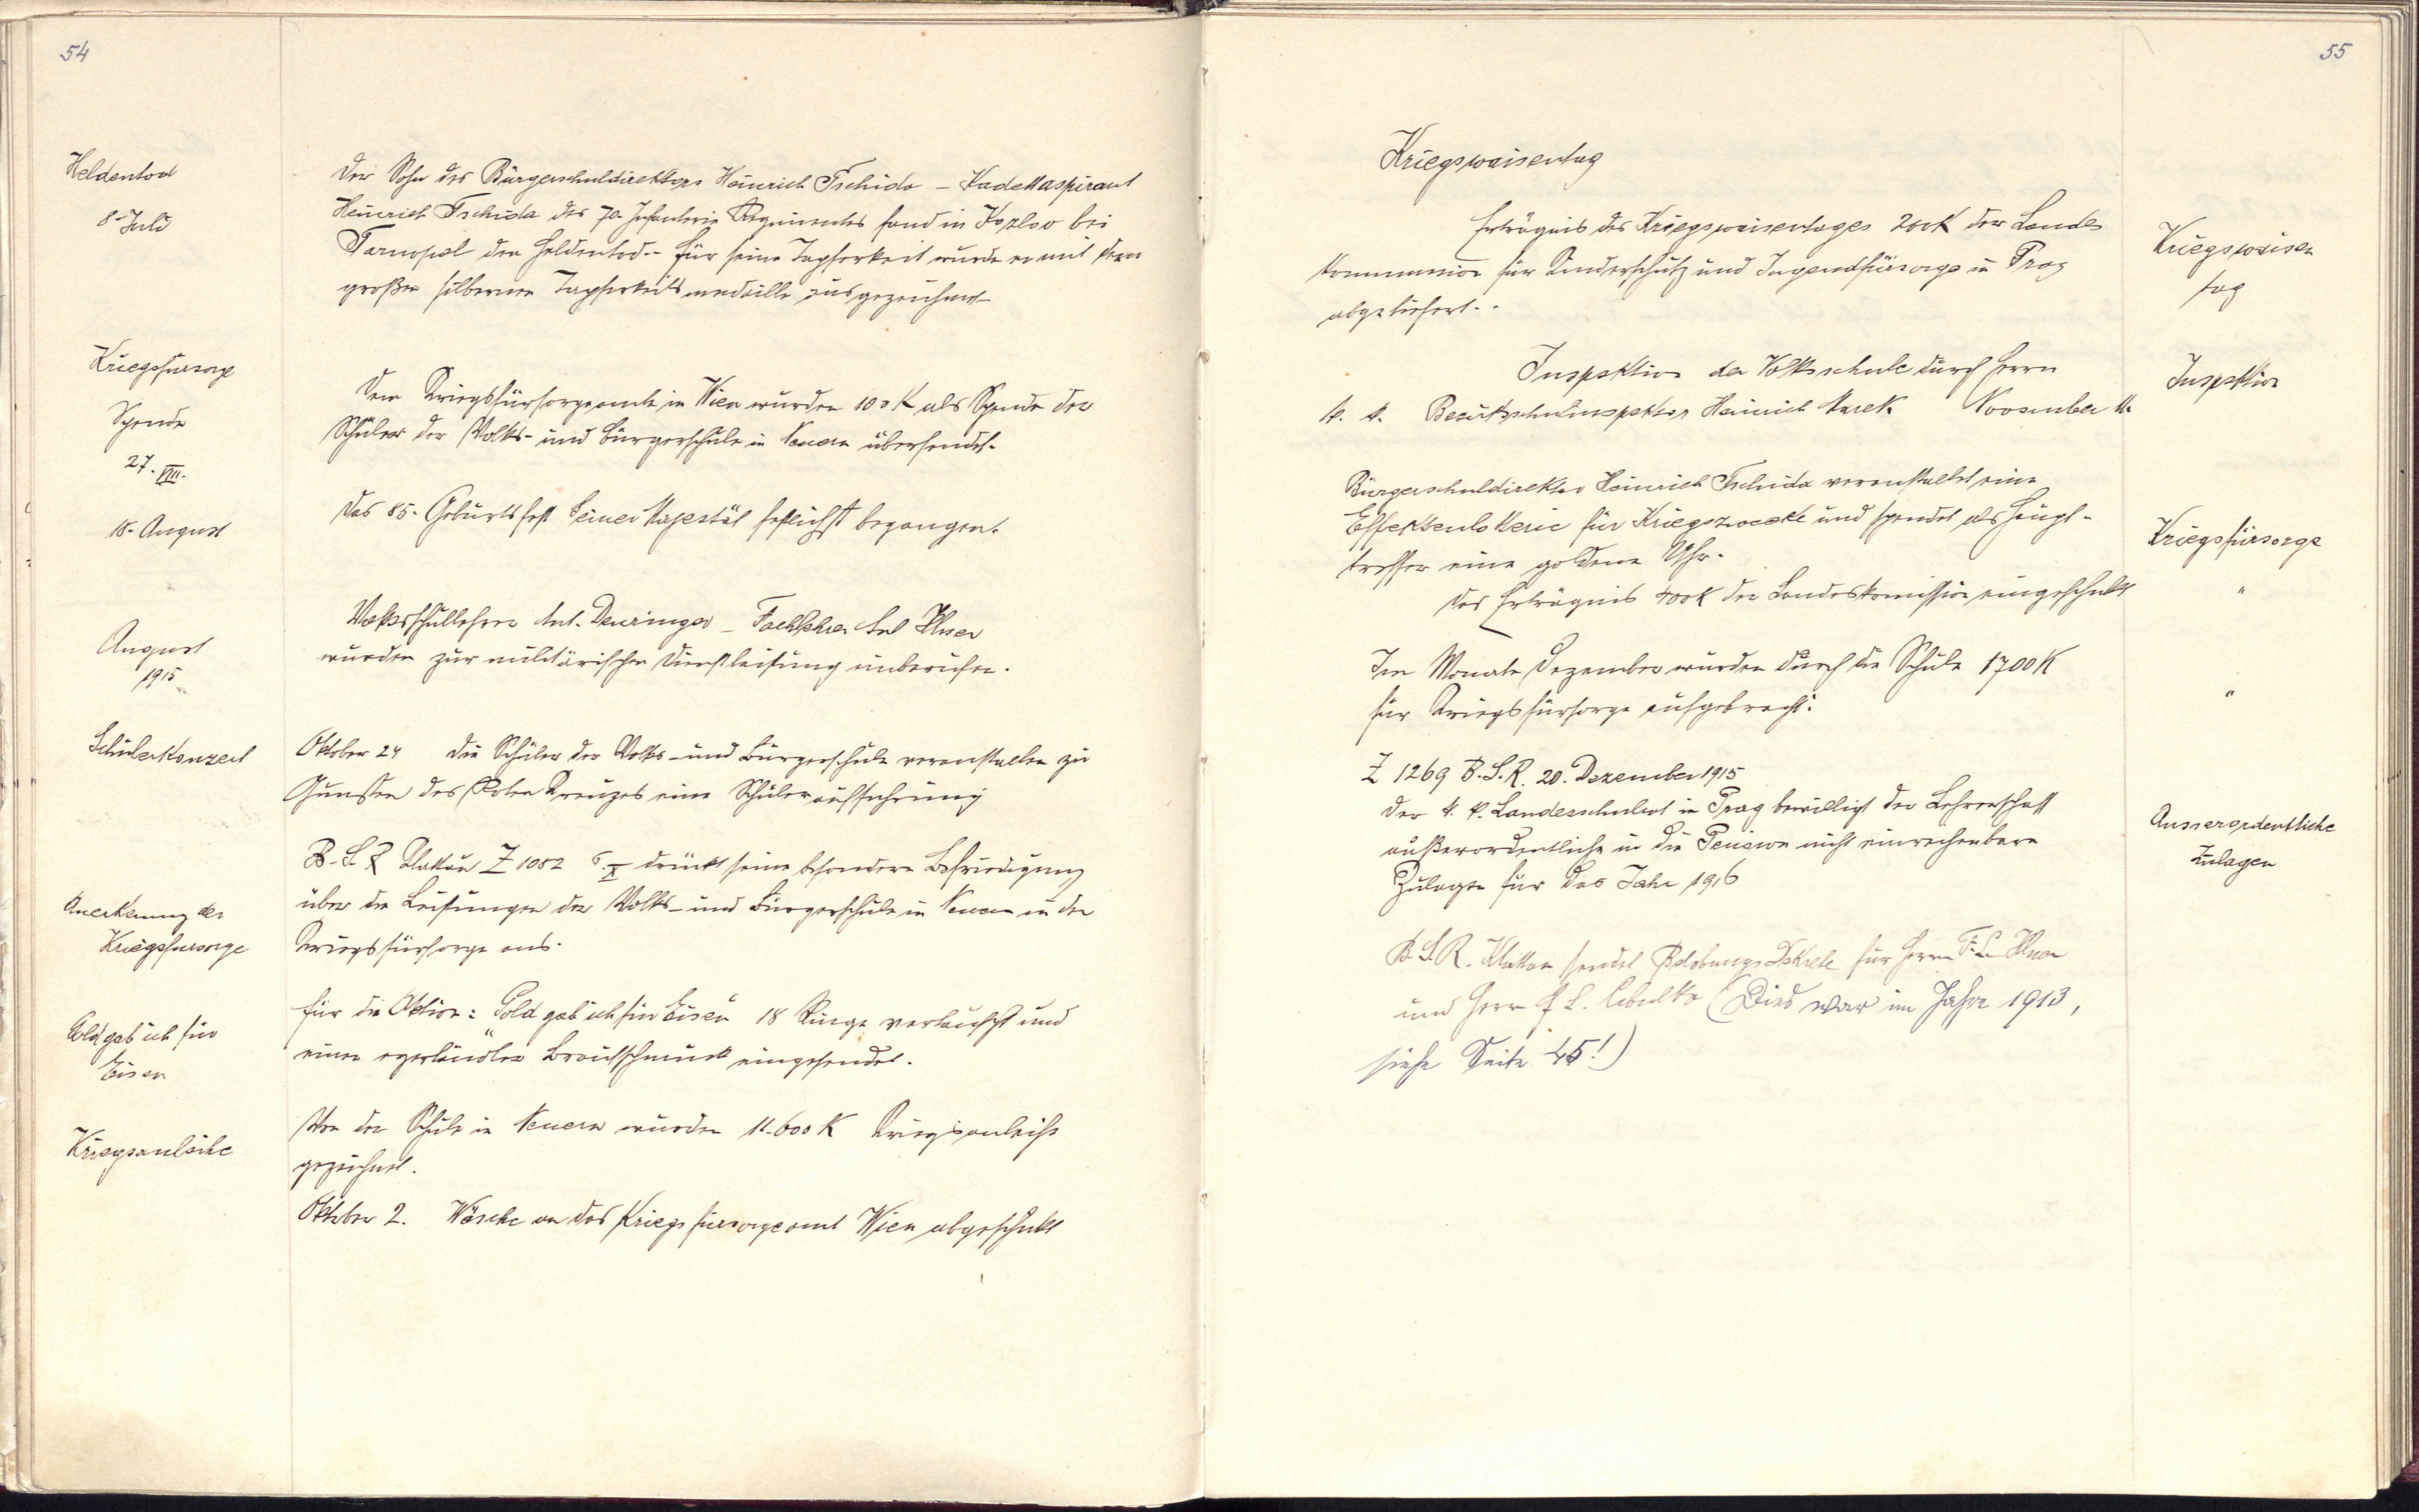 54
Heldentod
8. Juli
Der Sohn des Bürgerschuldirektors Heinrich Tschida – Kadettaspirant
Heinrich Tschida des 70. Infanterie Regimentes fand in Kozlow bei
Tarnopol den Heldentod. – Für seine Tapferkeit wurde er mit der
großen silbernen Tapferkeitsmedaille ausgezeichnet
Kriegsfürsorge
Spende
27. VIII.
Dem Kriegsfürsorgeamte in Wien wurden 100 K als Spende der
Schüler der Volks- und Bürgerschule in Neuern übersendet.
18. August
Das 85. Geburtsfest Seiner Majestät festlichst begangen.
August
1915
Volksschullehrer Ant. Denringer – Fachlehrer
wurden zur militärischen Dienstleistung einberufen.
Schülerkonzert
Oktober 24 Die Schüler der Volks- und Bürgerschule veranstalten zu
Gunsten des Roten Kreuzes eine Schüleraufführung
Anerkennung der
Kriegsfürsorge
B. S. R. Klattau Z 1082 6. X drückt seine besondere Befriedigung
über die Leistungen der Volks- und Bürgerschule in Neuern in der
Kriegsfürsorge aus.
Gold gab ich für
Eisen
Für die Aktion: "Gold gab ich für Eisen" 18 Ringe vertauscht und
einen egerländler Brautschmuck eingesendet.
Kriegsanleihe
Von der Schule in Neuern wurden 11.600 K Kriegsanleihe
gezeichnet.
Oktober 2. Wäsche an das Kriegsfürsorgeamt Wien abgeschickt
55
Kriegswaisentag
Erträgnis des Kriegswaisentages 200 K der Landes
kommission für Kinderschutz und Jugendfürsorge in Prag
abgeliefert. .
Kriegswaisen
tag
Inspektion der Volksschule durch Herrn
k. k. Bezirksschulinspektor Heinrich Marek November
Inspektion
Bürgerschuldirektor Heinrich Tschida veranstaltet eine
Effektenlotterie für Kriegszwecke und spendet als Haupt-
treffer eine goldene Uhr.
Kriegsfürsorge
Das Erträgnis 400 K der Landeskomission eingeschickt
"
Im Monate Dezember wurden durch die Schule 1700 K
für Kriegsfürsorge aufgebracht.
"
Z 1269 B. S. R. 20. Dezember 1915
Der k. k. Landesschulrat in Prag bewilligt der Lehrerschaft
außerordentliche in die Pension nicht einrechenbare
Zulagen für das Jahr 1916
Ausserordentliche
Zulagen
B. S. R. Klattau sendet Belobungs Dekrete für Herrn F. L.
und Herrn F. L. Cibulka (Dies war im Jahre 1913,
siehe Seite 45!)